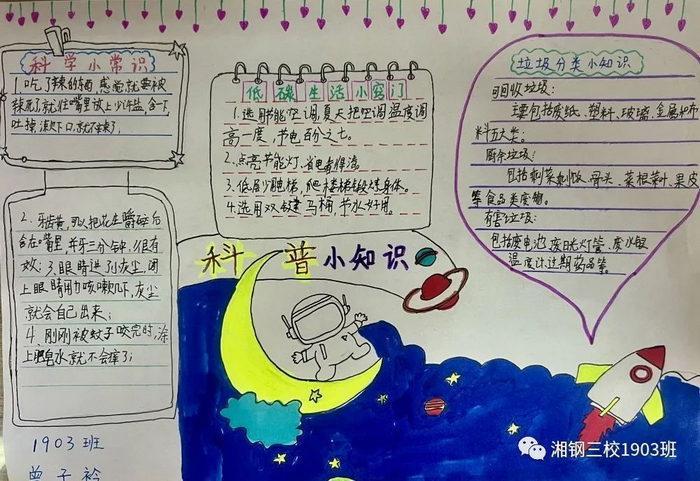 科学小常识
1、吃了辣的东西,感觉就要被
辣死了就往嘴里放上少许盐,含一下
吐掉漱下口,就不辣了。
2、牙齿黄,可以把花生嚼碎后
含在嘴里,并牙三分钟,很有
效;3、眼睛进了灰尘,闭
上眼睛用力咳嗽几下,灰尘
就会自己出来;
4、刚刚被蚊子咬完时,涂
上肥皂水就不会痒了;
1903班
曾子衿
低碳生活小窍门
1.选用节能空调,夏天把空调温度调
高一度,节电百分之七。
2.点亮节能灯,省电看得清。
3.低层少电梯,爬楼梯锻炼身体。
4.选用双键马桶,节水好用。
科普小知识
垃圾分类小知识
可回收垃圾:
主要包括废纸、塑料、玻璃、金属和布
料五大类。
厨余垃圾:
包括剩菜剩饭、骨头、菜根菜叶、果皮
等食品类废物。
有害垃圾:
包括废电池、废日光灯管、废水银
温度计、过期药品等。
湘钢三校1903班